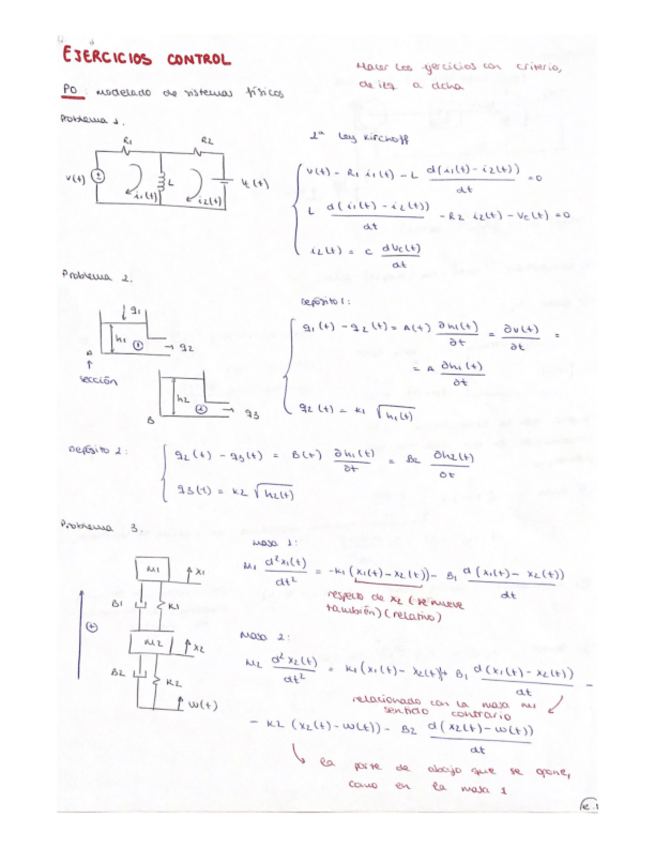 EJERCICIOS CONTROL
Hacer los ejercicios con criterio,
de izq a dcha
P0: modelado de sistemas físicos
Problema 1.
R1
R2
v(t)
i1(t)
L
i2(t)
Vc(t)
2ª Ley Kirchoff
v(t) - R1 i1(t) - L d(i1(t) - i2(t))/dt = 0
L d(i1(t) - i2(t))/dt - R2 i2(t) - Vc(t) = 0
i2(t) = C dVc(t)/dt
Problema 2.
q1
h1
1
→ q2
A
sección
h2
2
→ q3
B
Depósito 1:
q1(t) - q2(t) = A(t) ∂h1(t)/∂t = ∂v(t)/∂t =
= A ∂h1(t)/∂t
q2(t) = K1 √h1(t)
Depósito 2:
q2(t) - q3(t) = B(t) ∂h1(t)/∂t = B2 ∂h2(t)/∂t
q3(t) = K2 √h2(t)
Problema 3.
M1
x1
B1
K1
+
M2
x2
B2
K2
w(t)
Masa 1:
M1 d²x1(t)/dt² = -K1(x1(t) - x2(t)) - B1 d(x1(t) - x2(t))/dt
respecto de x2 (se mueve
también) (relativo)
Masa 2:
M2 d²x2(t)/dt² = K1(x1(t) - x2(t)) + B1 d(x1(t) - x2(t))/dt -
relacionado con la masa M1
sentido contrario
- K2 (x2(t) - w(t)) - B2 d(x2(t) - w(t))/dt
la parte de abajo que se opone,
como en la masa 1